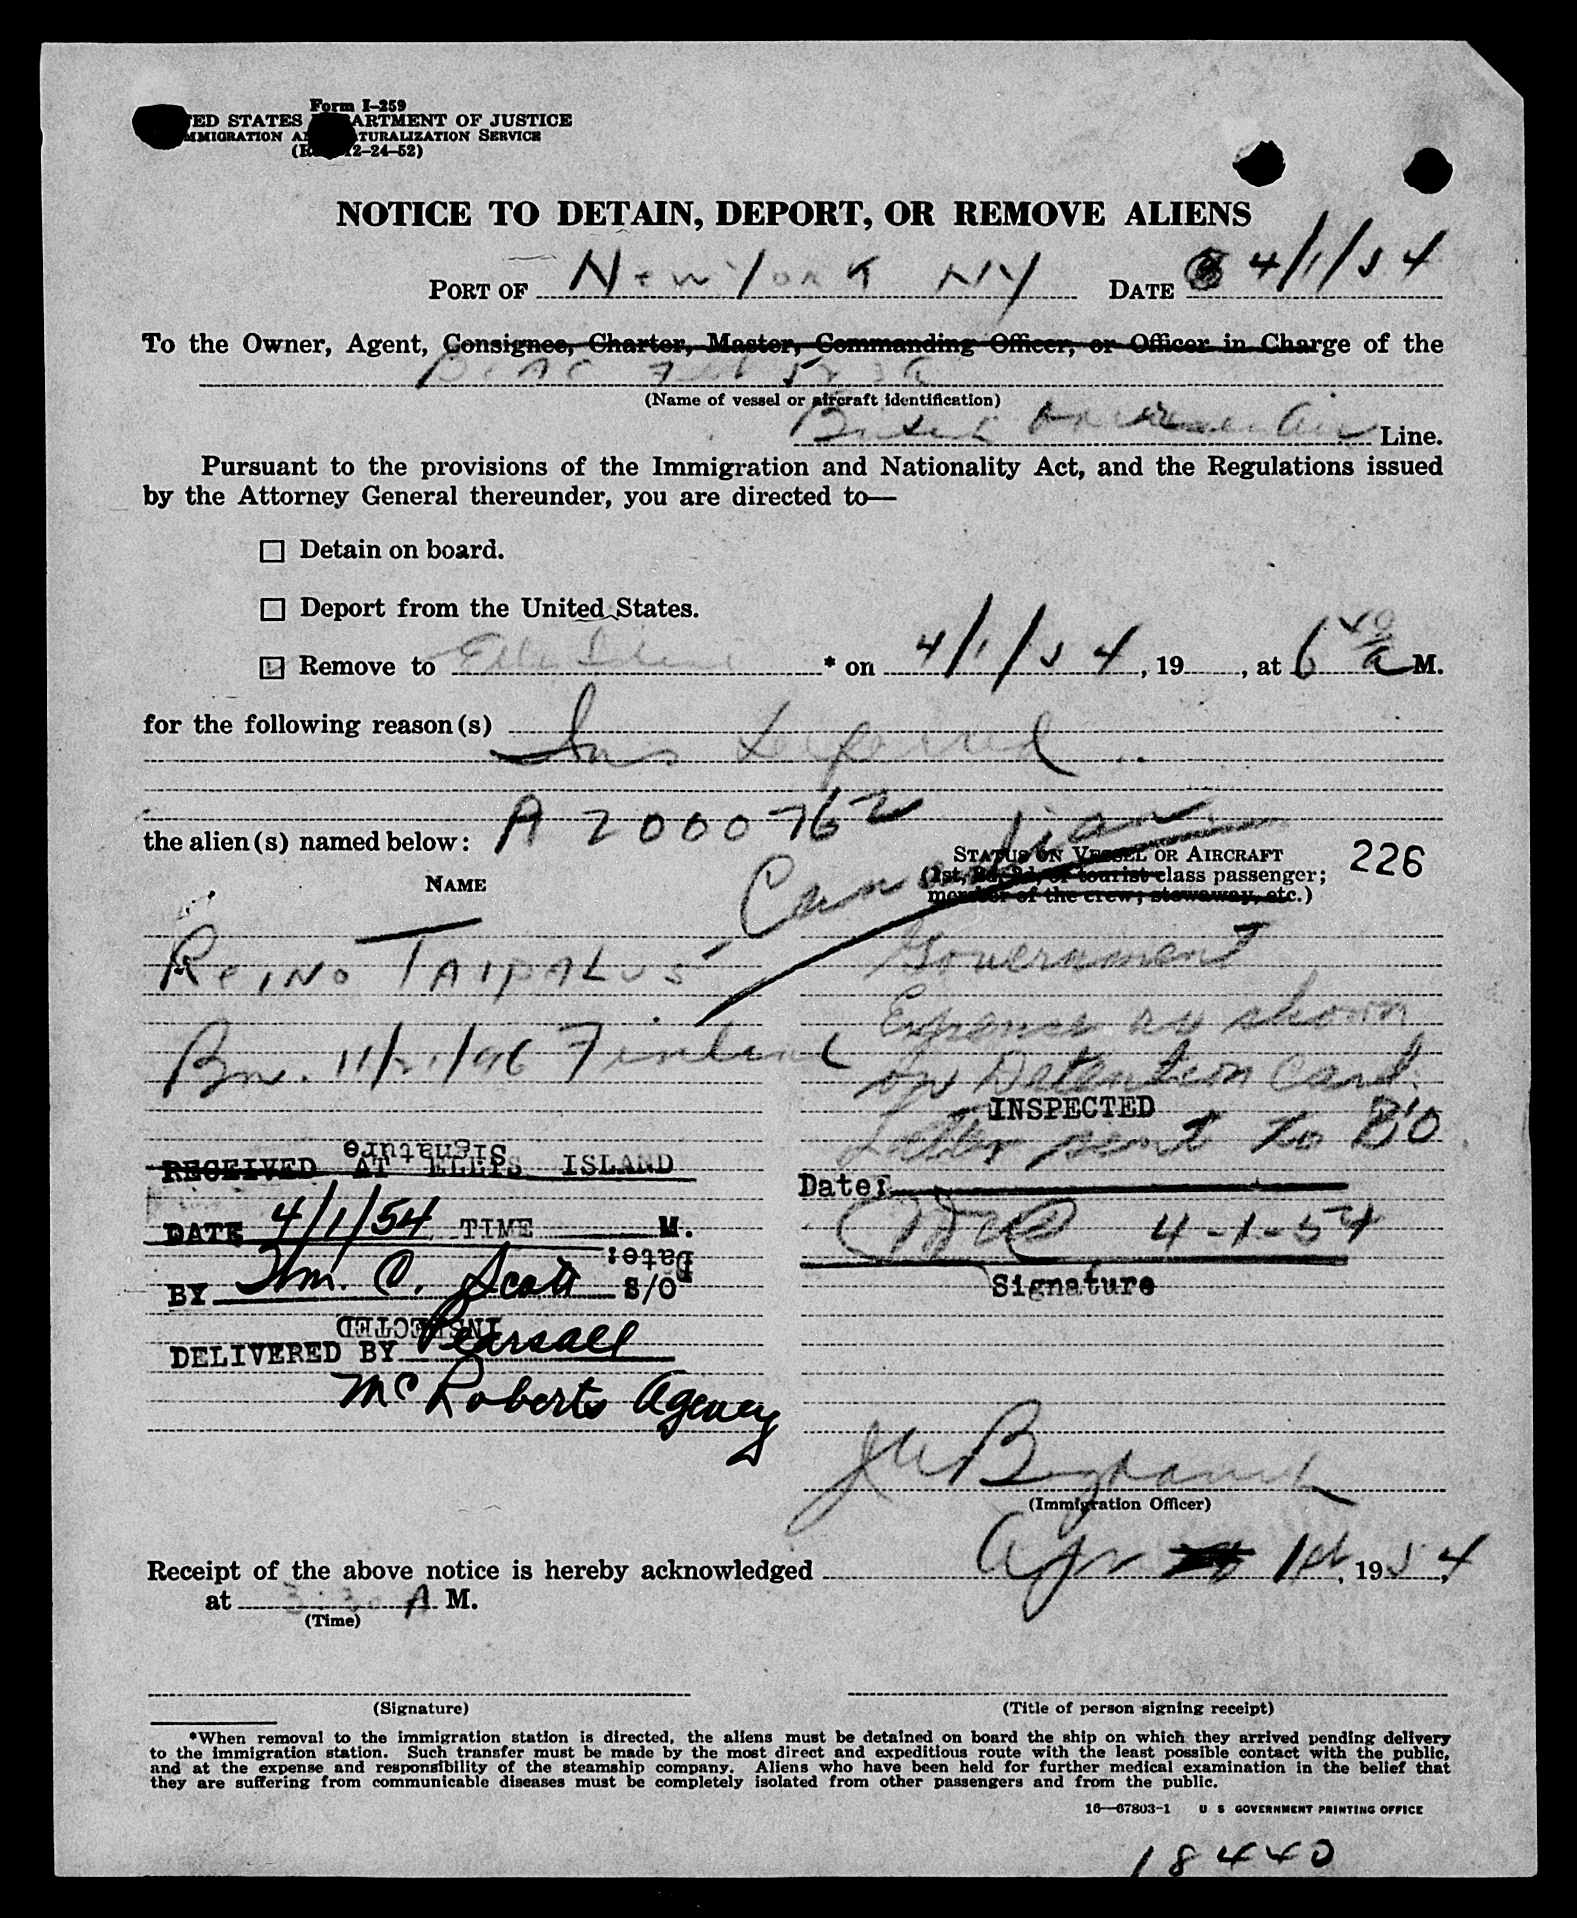 Form I-259
ED STATES ARTMENT OF JUSTICE
MMIGRATION A TURALIZATION SERVICE
2-24-52)
NOTICE TO DETAIN, DEPORT, OR REMOVE ALIENS
PORT OF New York NY DATE 4/1/54
To the Owner, Agent, Consignee, Charter, Master, Commanding Officer, or Officer in Charge of the
(Name of vessel or aircraft identification)
British Air Line.
Pursuant to the provisions of the Immigration and Nationality Act, and the Regulations issued
by the Attorney General thereunder, you are directed to—
Detain on board.
Deport from the United States.
Remove to Ellis Island * on 4/1/54, 19 , at 6 40 a M.
for the following reason(s)
Ins Deferred
A 2000762
the alien(s) named below:
Canadian
NAME
STATUS ON VESSEL OR AIRCRAFT
(1st, 2d, 3d, or tourist class passenger;
member of the crew; stowaway, etc.)
226
Reino Taipalus
Government
Expense as shown
Bn. 11/21/96 Finland
on Detention Card.
INSPECTED
Letter sent to B'O
Signature
RECEIVED AT ELLIS ISLAND
Date:
DATE 4/1/54 TIME M.
4-1-54
Date:
BY Wm. C. Scott S/O
Signature
INSPECTED
DELIVERED BY Pearsall
McRoberts Agency
(Immigration Officer)
Receipt of the above notice is hereby acknowledged Apr 1st, 1954
at 3:30 A M.
(Time)
(Signature)
(Title of person signing receipt)
*When removal to the immigration station is directed, the aliens must be detained on board the ship on which they arrived pending delivery
to the immigration station. Such transfer must be made by the most direct and expeditious route with the least possible contact with the public,
and at the expense and responsibility of the steamship company. Aliens who have been held for further medical examination in the belief that
they are suffering from communicable diseases must be completely isolated from other passengers and from the public.
16—67803-1 U S GOVERNMENT PRINTING OFFICE
18440